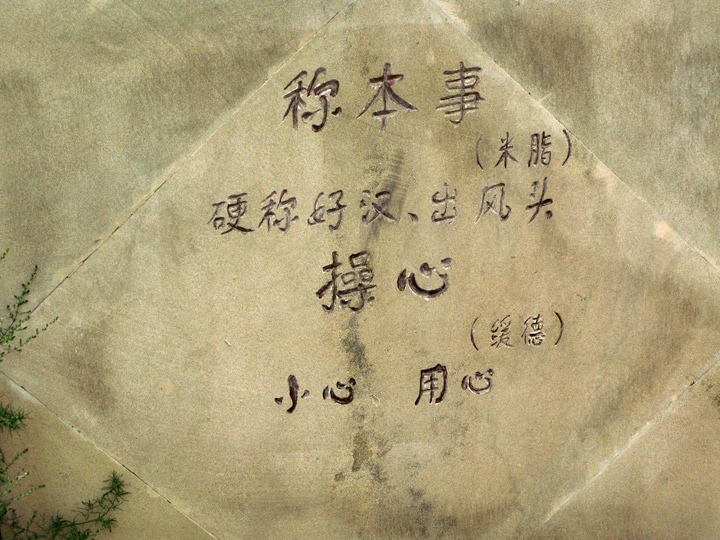 称本事
(米脂)
硬称好汉、出风头
操心
(绥德)
小心 用心